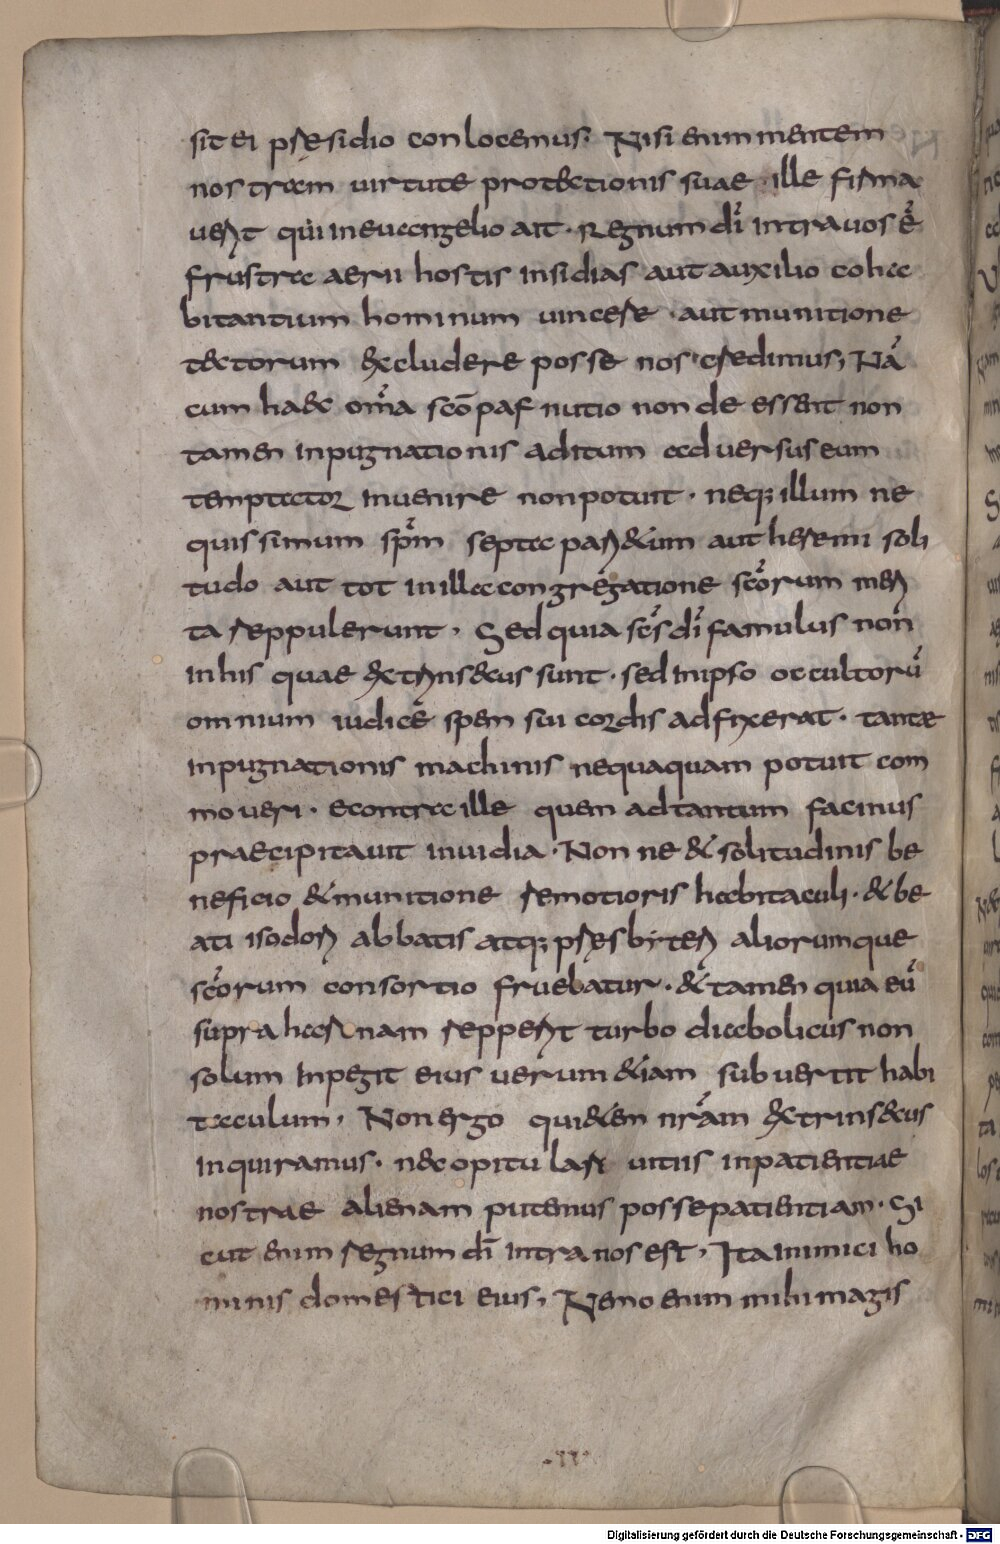 sit ei praesidio conlocemus. Nisi enim mentem
nostram uirtute protectionis suae ille firma
uerit qui in euangelio ait. Regnum dī intra uos ē
frustra aerii hostis insidias aut auxilio coha
bitantium hominum uincere aut munitione
tectorum excludere posse nos credimus, Nā
cum haec om̄a sc̄o pafnutio non deessent non
tamen inpugnationis aditum aduersus eum
temptator inuenire non potuit. neq; illum ne
quissimum sp̄m septa parietum aut heremi soli
tudo aut tot in illa congregatione sc̄orum meri
ta reppulerunt, Sed quia sc̄s dī famulus non
in his quae extrinsecus sunt. sed in ipso occultorū
omnium iudicē spem sui cordis adfixerat. tantae
inpugnationis machinis nequaquam potuit com
moueri. econtra ille quem ad tantum facinus
praecipitauit inuidia. Nonne & solitudinis be
neficio & munitione remotioris habitaculi. & be
ati isodori abbatis atq; presbyteri aliorumque
sc̄orum consortio fruebatur. & tamen quia eū
supra harenam repperit turbo diabolicus non
solum inpegit eius uerum &iam subuertit habi
taculum, Non ergo qui&em nr̄am extrinsecus
inquiramus. nec opitulari uitiis inpatientiae
nostrae alienam putemus posse patientiam. Si
cut enim regnum dī intra nos est, Ita inimici ho
minis domestici eius, Nemo enim mihi magis
Digitalisierung gefördert durch die Deutsche Forschungsgemeinschaft - DFG